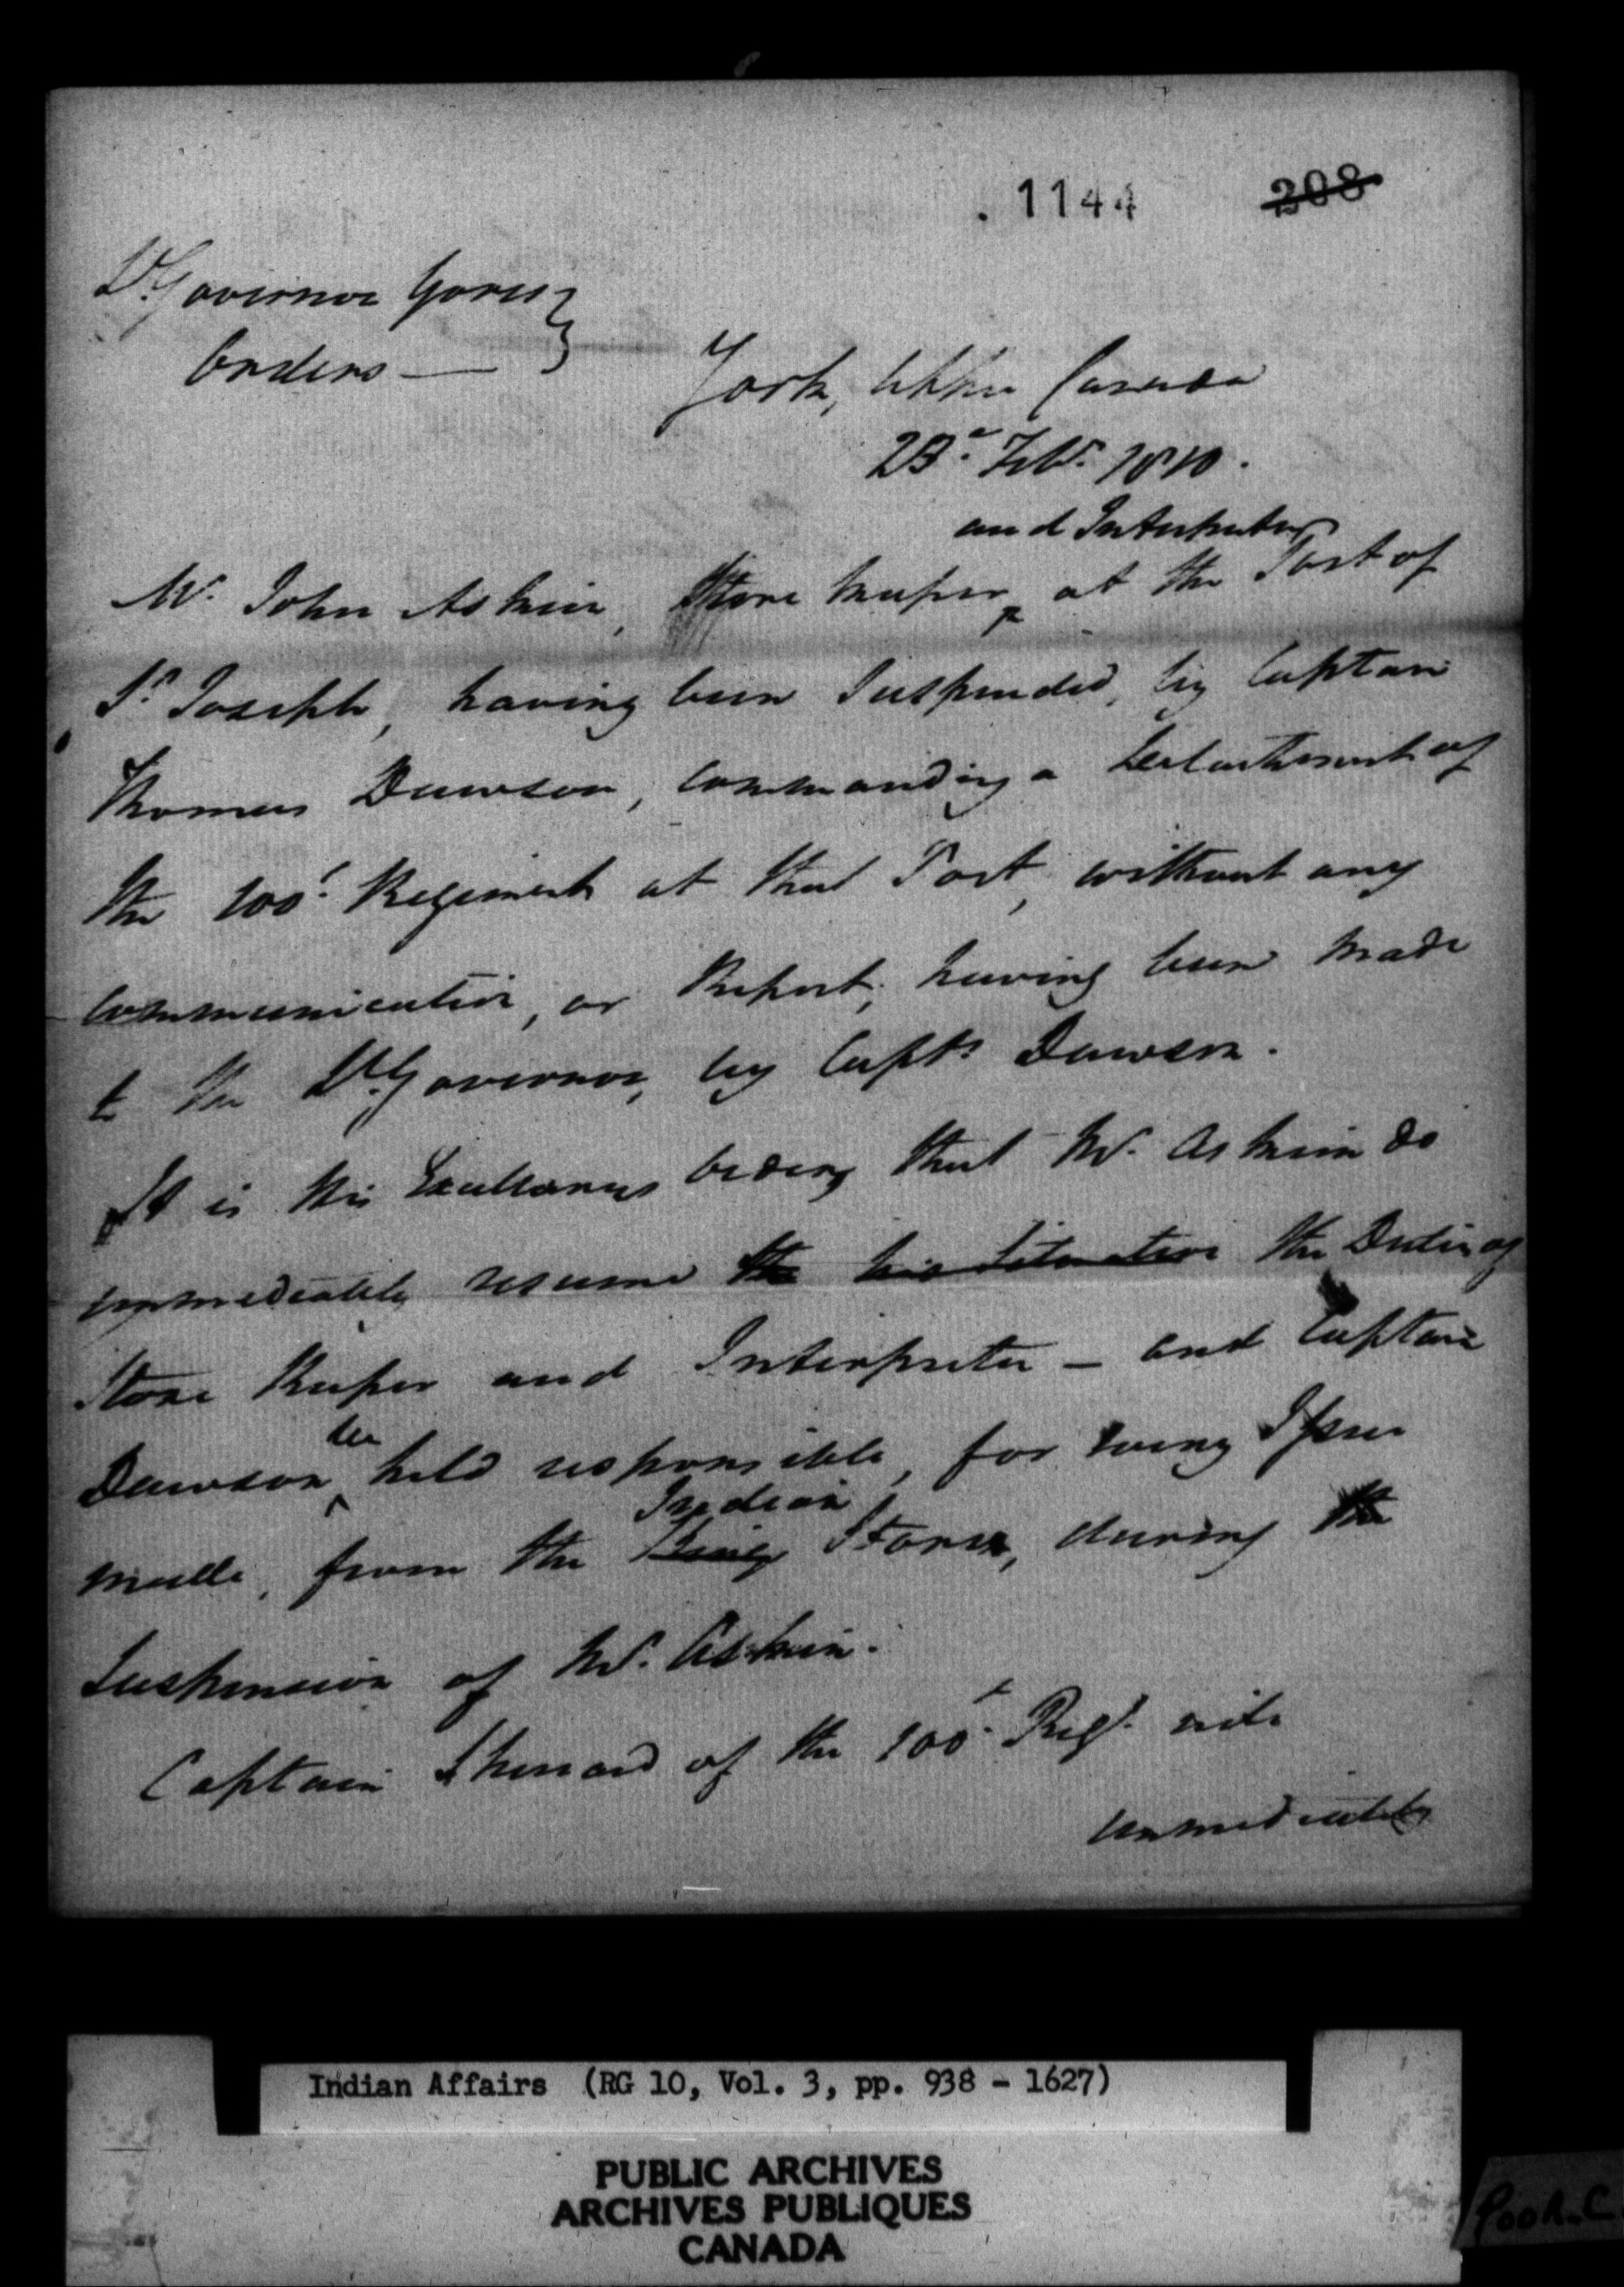 1144 208
Lt. Governor Gores
Orders —
York, Upper Canada
23d. Feby. 1810.
and Interpreter
Mr. John Askin, Store keeper at the Post of
St. Joseph, having been Suspended, by Captain
Thomas Dawson, commanding a Detachment of
the 100t. Regiment at that Post, without any
communication, or Report, having been made
to the Lt. Governor, by Captn Dawson.
It is His Excellencys Orders that Mr. Askin do
immediately resume the his situation the Duties of
Store Keeper and Interpreter — and Captain
be
Dawson held responsible, for every Issue
Indian
made, from the Kings Stores, during the
Suspension of Mr. Askin.
Captain Sherrard of the 100t. Regt. will
immediately
Indian Affairs (RG 10, Vol. 3, pp. 938 - 1627)
PUBLIC ARCHIVES
ARCHIVES PUBLIQUES
CANADA